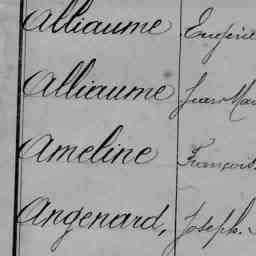 Alliaume
Alliaume Jean Mar
Ameline François
Angenard, Joseph.